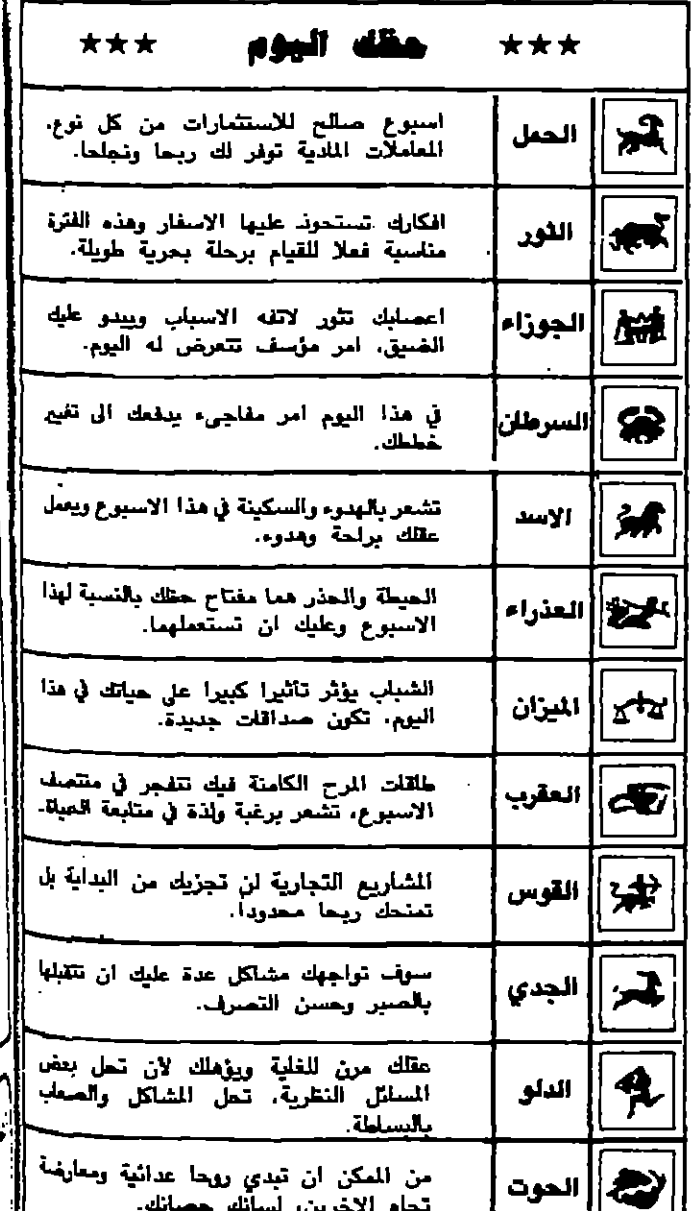 ★★★ حظك اليوم ★★★
الحمل
اسبوع صالح للاستثمارات من كل نوع.
المعاملات المادية توفر لك ربحا ونجاحا.
الثور
افكارك تستحوذ عليها الاسفار وهذه الفترة
مناسبة فعلا للقيام برحلة بحرية طويلة.
الجوزاء
اعصابك تثور لاتفه الاسباب ويبدو عليك
الضيق، امر مؤسف تتعرض له اليوم.
السرطان
في هذا اليوم امر مفاجىء يدفعك الى تغيير
خططك.
الاسد
تشعر بالهدوء والسكينة في هذا الاسبوع ويعمل
عقلك براحة وهدوء.
العذراء
الحيطة والحذر هما مفتاح حظك بالنسبة لهذا
الاسبوع وعليك ان تستعملهما.
الميزان
الشباب يؤثر تأثيرا كبيرا على حياتك في هذا
اليوم، تكون صداقات جديدة.
العقرب
طاقات المرح الكامنة فيك تتفجر في منتصف
الاسبوع، تشعر برغبة ولذة في متابعة الحياة.
القوس
المشاريع التجارية لن تجزيك من البداية بل
تمنحك ربحا محدودا.
الجدي
سوف تواجهك مشاكل عدة عليك ان تتقبلها
بالصبر وحسن التصرف.
الدلو
عقلك مرن للغاية ويؤهلك لأن تحل بعض
المسائل النظرية، تحل المشاكل والصعاب
بالبساطة.
الحوت
من الممكن ان تبدي روحا عدائية ومعارضة
تجاه الاخرين، لسانك حصانك.